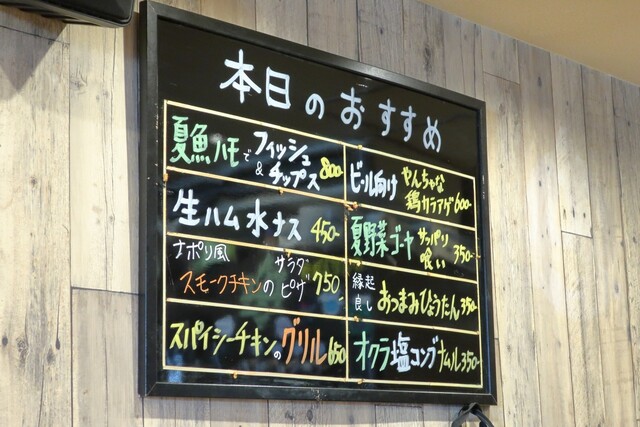 本日のおすすめ
夏魚ハモでフィッシュ
&チップス 800-
生ハム水ナス 450-
ナポリ風 サラダ
スモークチキンのピザ 750
スパイシーチキンのグリル 650
ビール向け やんちゃな
鶏カラアゲ 600-
夏野菜ゴーヤ サッパリ
喰い 350-
縁起
良し おつまみひょうたん 350-
オクラ塩コンブナムル 350-